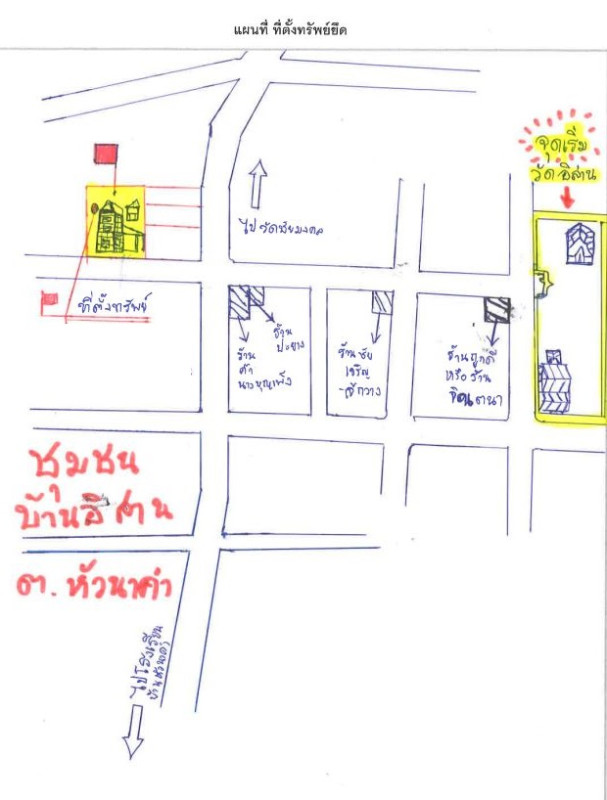 แผนที่ ที่ตั้งทรัพย์ยึด
จุดเริ่ม
วัดอิสาน
ไปวัดชัยมงคล
ที่ตั้งทรัพย์
ร้าน
ปะยาง
ร้าน
ค้า
ร้านชัย
เจริญ
ร้านถูกดี
หรือร้าน
ชุมชน
บ้านอิสาน
ต.หัวนาคำ
ไปโรงเรียน
บ้านหัวนาคำ